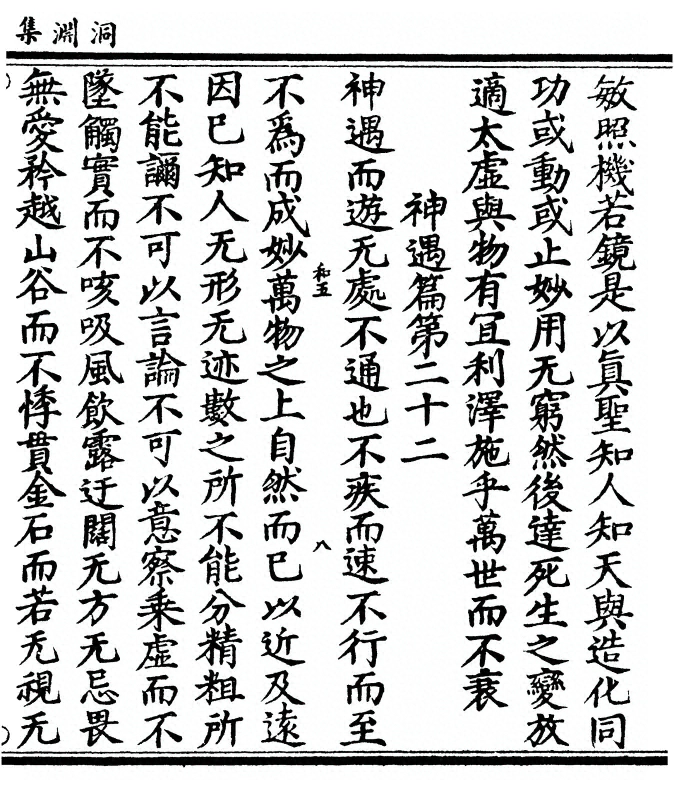 洞淵集
敏照機若鏡是以眞聖知人知天與造化同
功或動或止妙用无窮然後達死生之變放
適太虛與物有宜利澤施乎萬世而不衰
神遇篇第二十二
神遇而遊无處不通也不疾而速不行而至
和五
八
不爲而成妙萬物之上自然而已以近及遠
因已知人无形无迹數之所不能分精粗所
不能讁不可以言論不可以意察乘虛而不
墜觸實而不咳吸風飲露迂闊无方无忌畏
無愛矜越山谷而不悸貫金石而若无視无